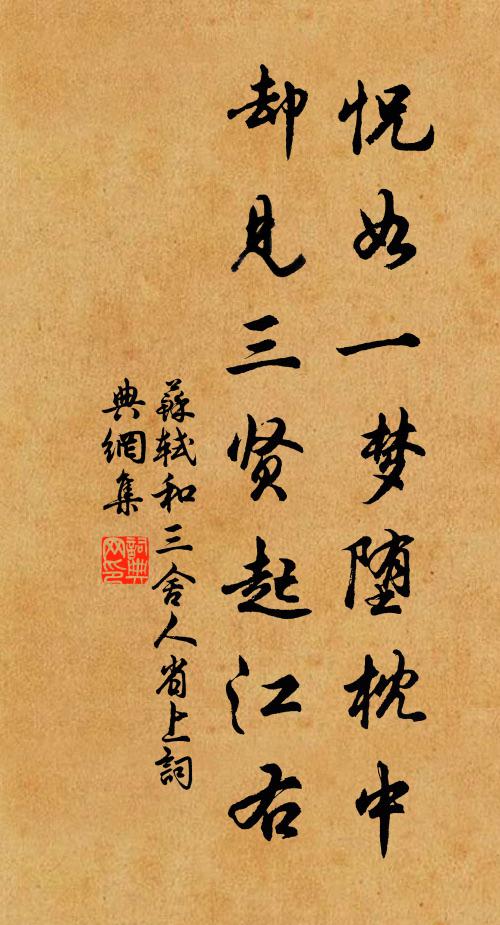 怳如一梦堕枕中
却见三贤起江右
蘇轼和三舍人省上詞
典網集
詞典
网印